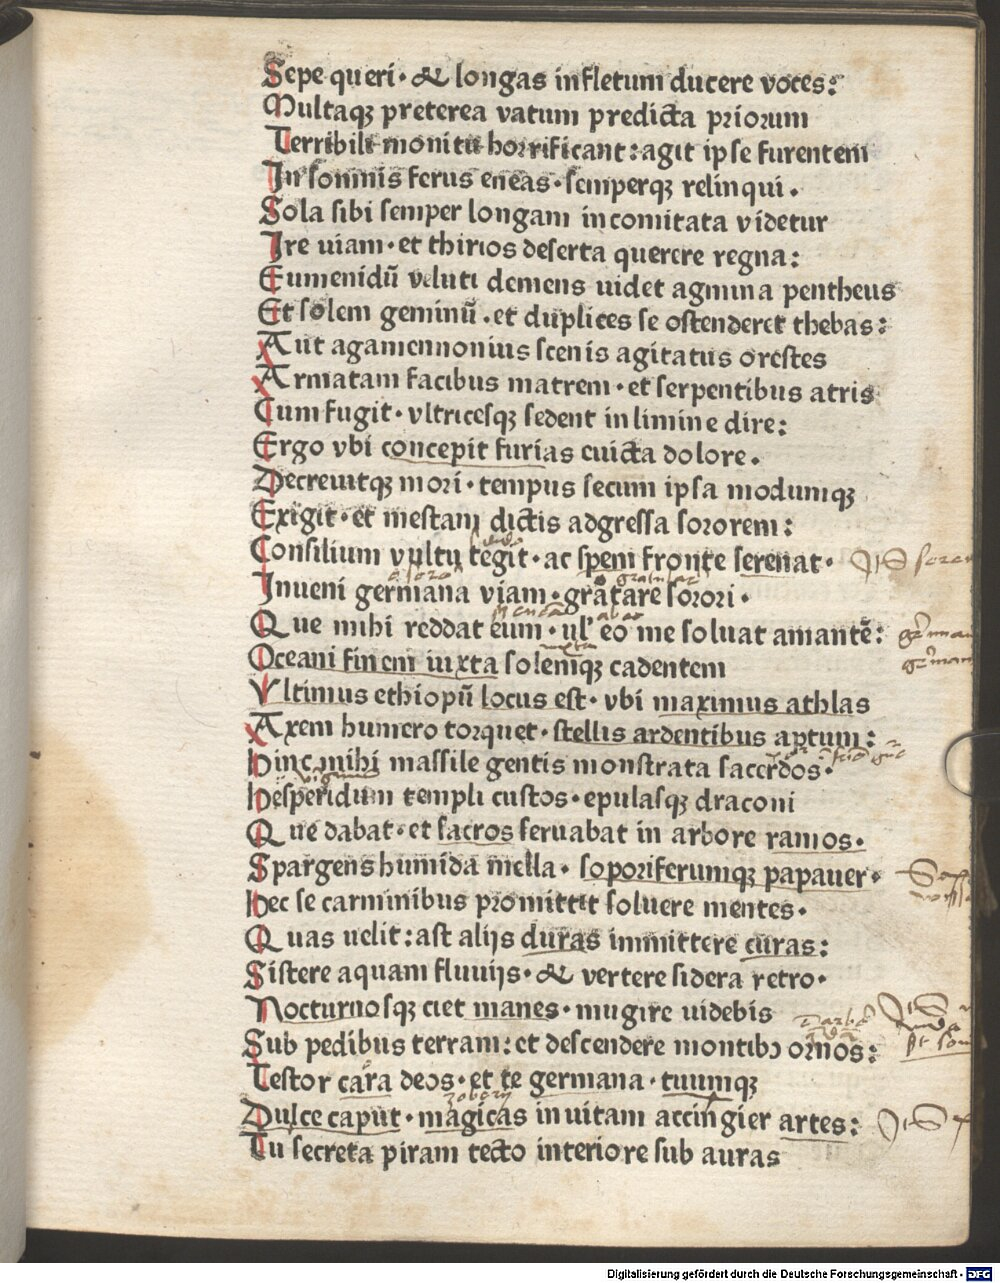 Sepe queri · & longas in fletum ducere voces:
Multaqꝫ preterea vatum predicta priorum
Terribili monitu horrificant: agit ipse furentem
In somnis ferus eneas · semperqꝫ relinqui .
Sola sibi semper longam incomitata videtur
Ire uiam · et thirios deserta querere regna:
Eumenidū veluti demens uidet agmina pentheus
Et solem geminū . et duplices se ostenderet thebas:
Aut agamennonius scenis agitatus orestes
Armatam facibus matrem · et serpentibus atris
Cum fugit · vltricesqꝫ sedent in limine dire:
Ergo vbi concepit furias euicta dolore .
Decreuitqꝫ mori · tempus secum ipsa modumqꝫ
Exigit · et mestam dictis adgressa sororem:
Consilium vultu tegit · ac spem fronte serenat ·
Inueni germana viam · gratare sorori ·
Que mihi reddat eum · ul' eo me soluat amantē:
Oceani finem iuxta solemqꝫ cadentem
Vltimus ethiopū locus est · vbi maximus athlas
Axem humero torquet · stellis ardentibus aptum:
Hinc mihi massile gentis monstrata sacerdos ·
Hesperidum templi custos · epulasqꝫ draconi
Que dabat · et sacros seruabat in arbore ramos ·
Spargens humida mella · soporiferumqꝫ papauer ·
Hec se carminibus promittit soluere mentes ·
Quas uelit: ast alijs duras immittere curas:
Sistere aquam fluuijs · & vertere sidera retro ·
Nocturnosqꝫ ciet manes · mugire uidebis
Sub pedibus terram: et descendere montibꝰ ornos:
Testor cara deos · et te germana · tuumqꝫ
Dulce caput · magicas inuitam accingier artes:
Tu secreta piram tecto interiore sub auras
Digitalisierung gefördert durch die Deutsche Forschungsgemeinschaft - DFG